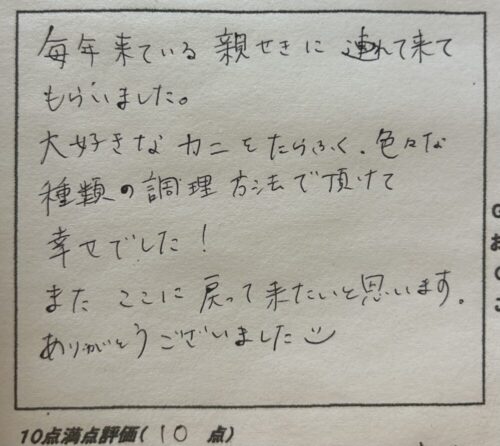 毎年来ている親せきに連れて来て
もらいました。
大好きなカニをたらふく、色々な
種類の調理方法で頂けて
幸せでした！
また ここに戻って来たいと思います。
ありがとうございました
10点満点評価( 10 点)